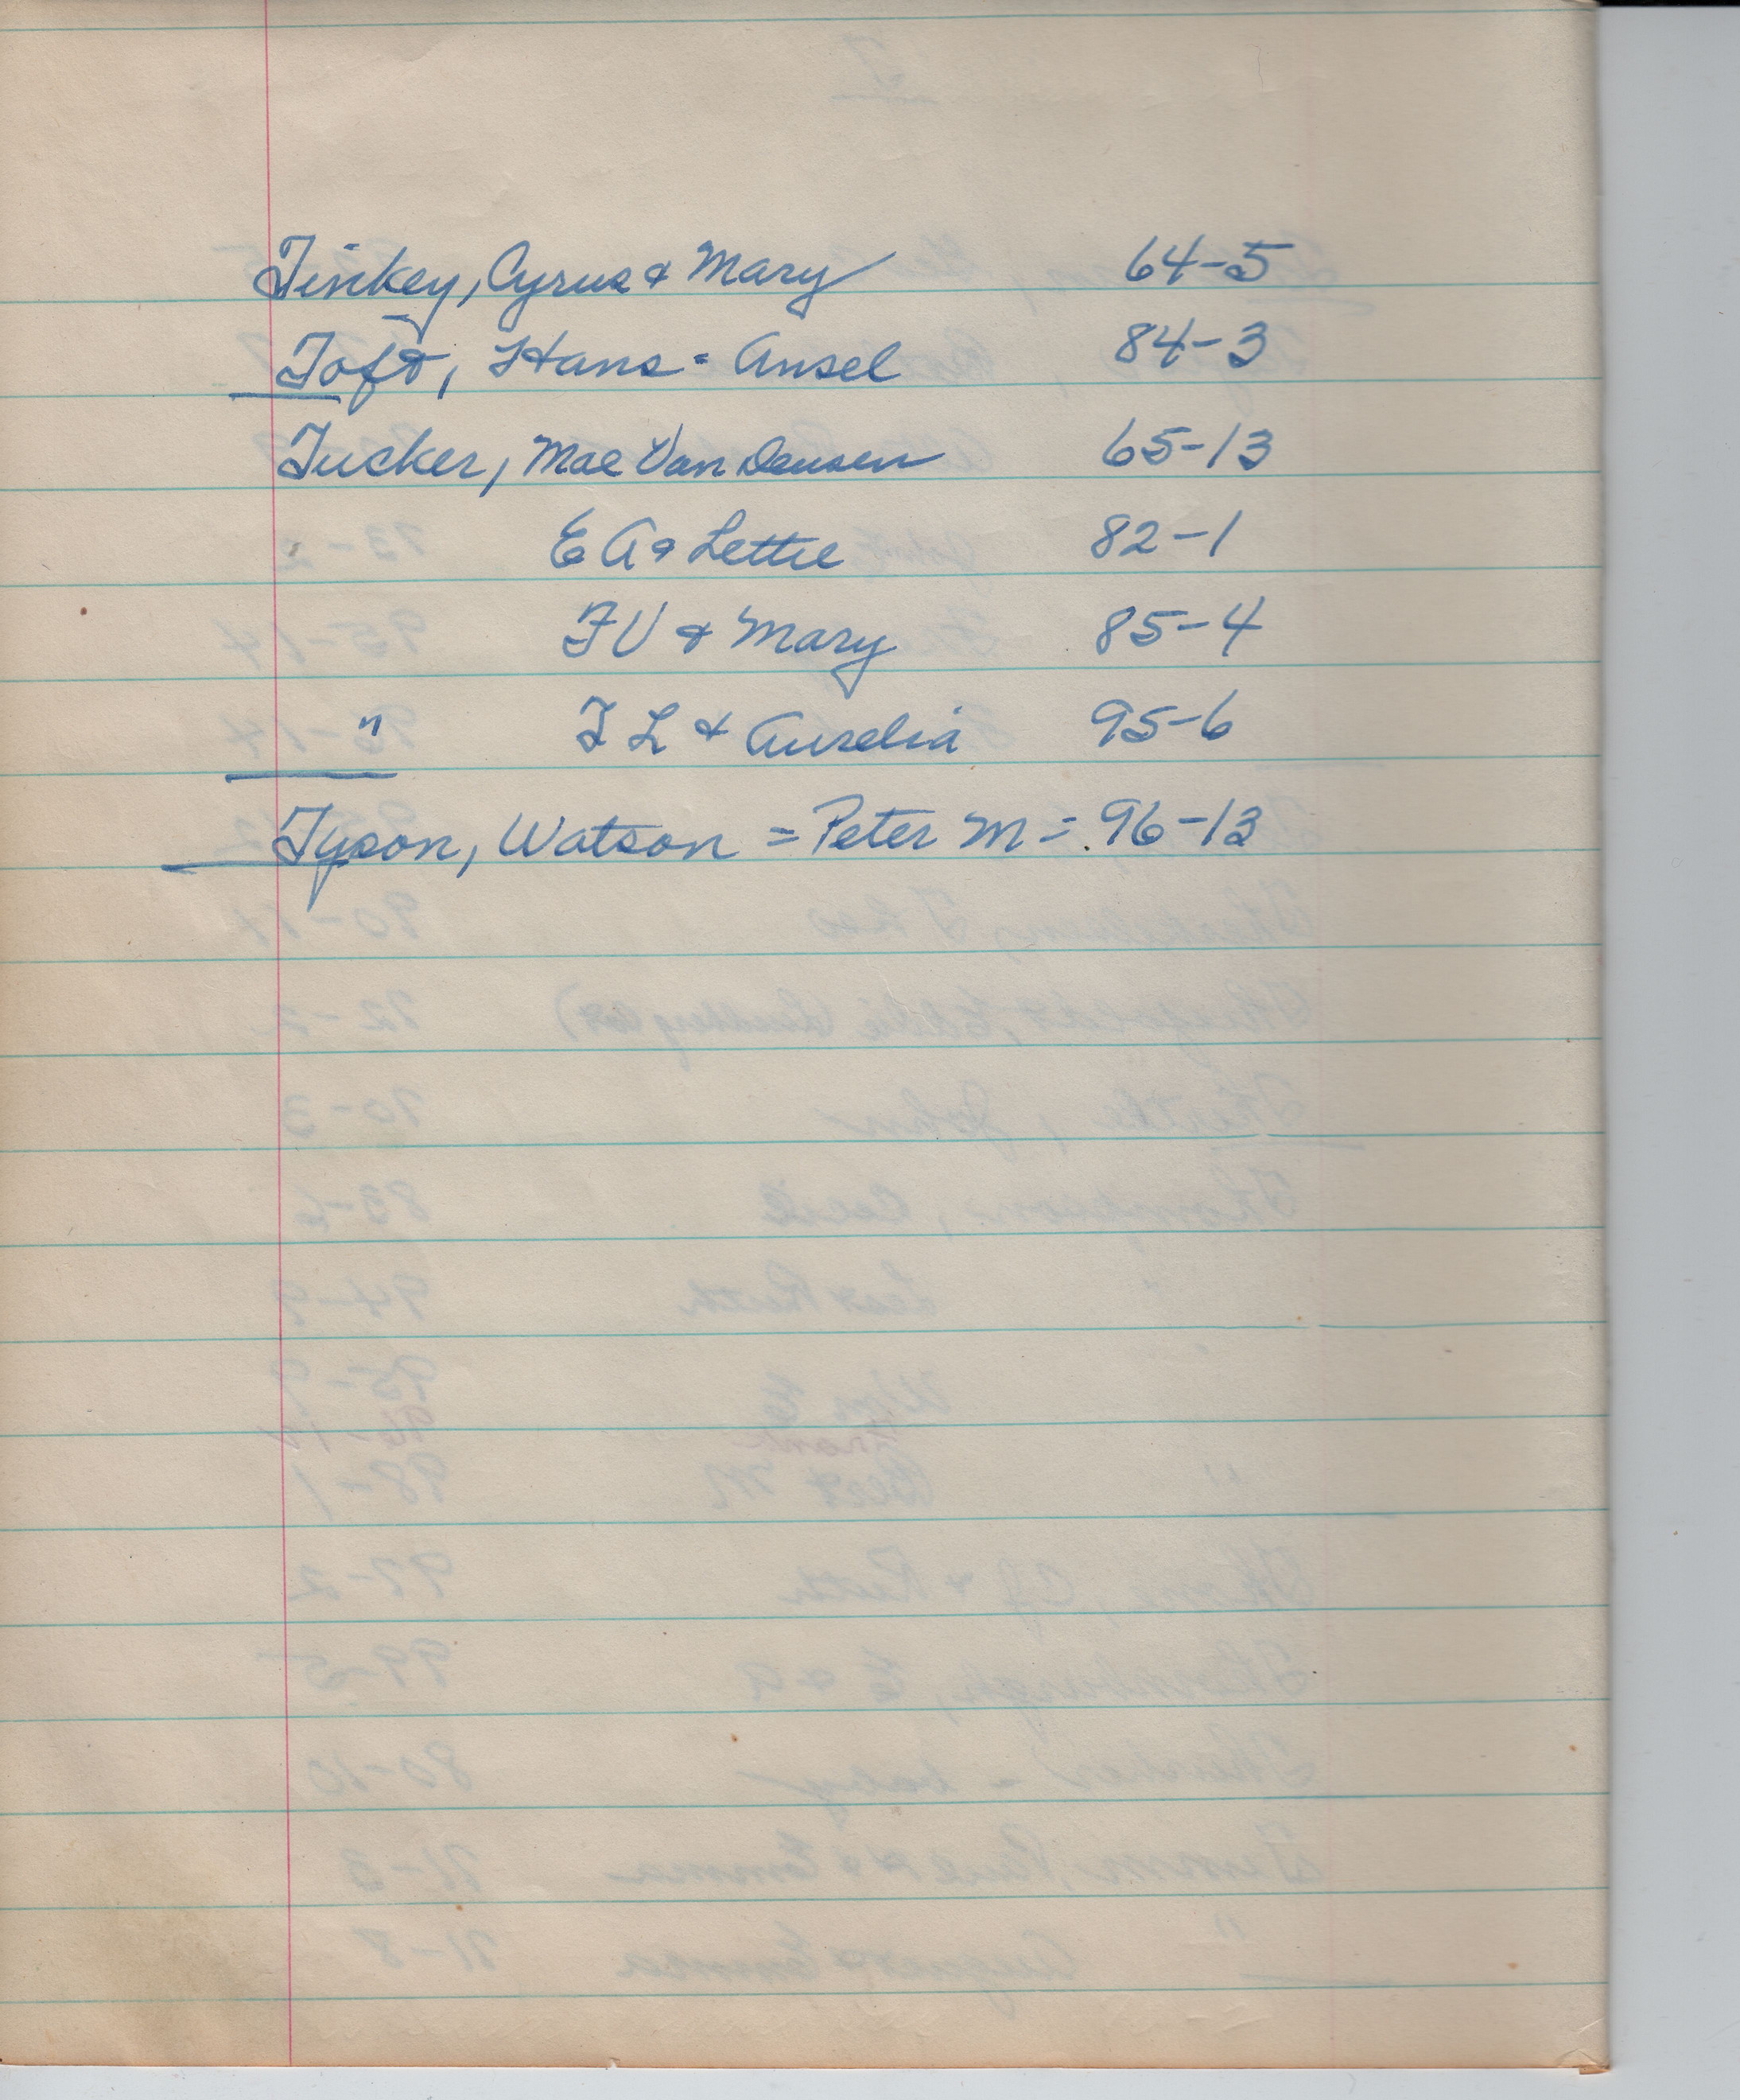 Tinkey, Cyrus & Mary 64-5
Toft, Hans = Ansel 84-3
Tucker, Mae Van Deusen 65-13
E A & Lettie 82-1
F V & Mary 85-4
" F L & Aurelia 95-6
Tyson, Watson = Peter M = 96-13